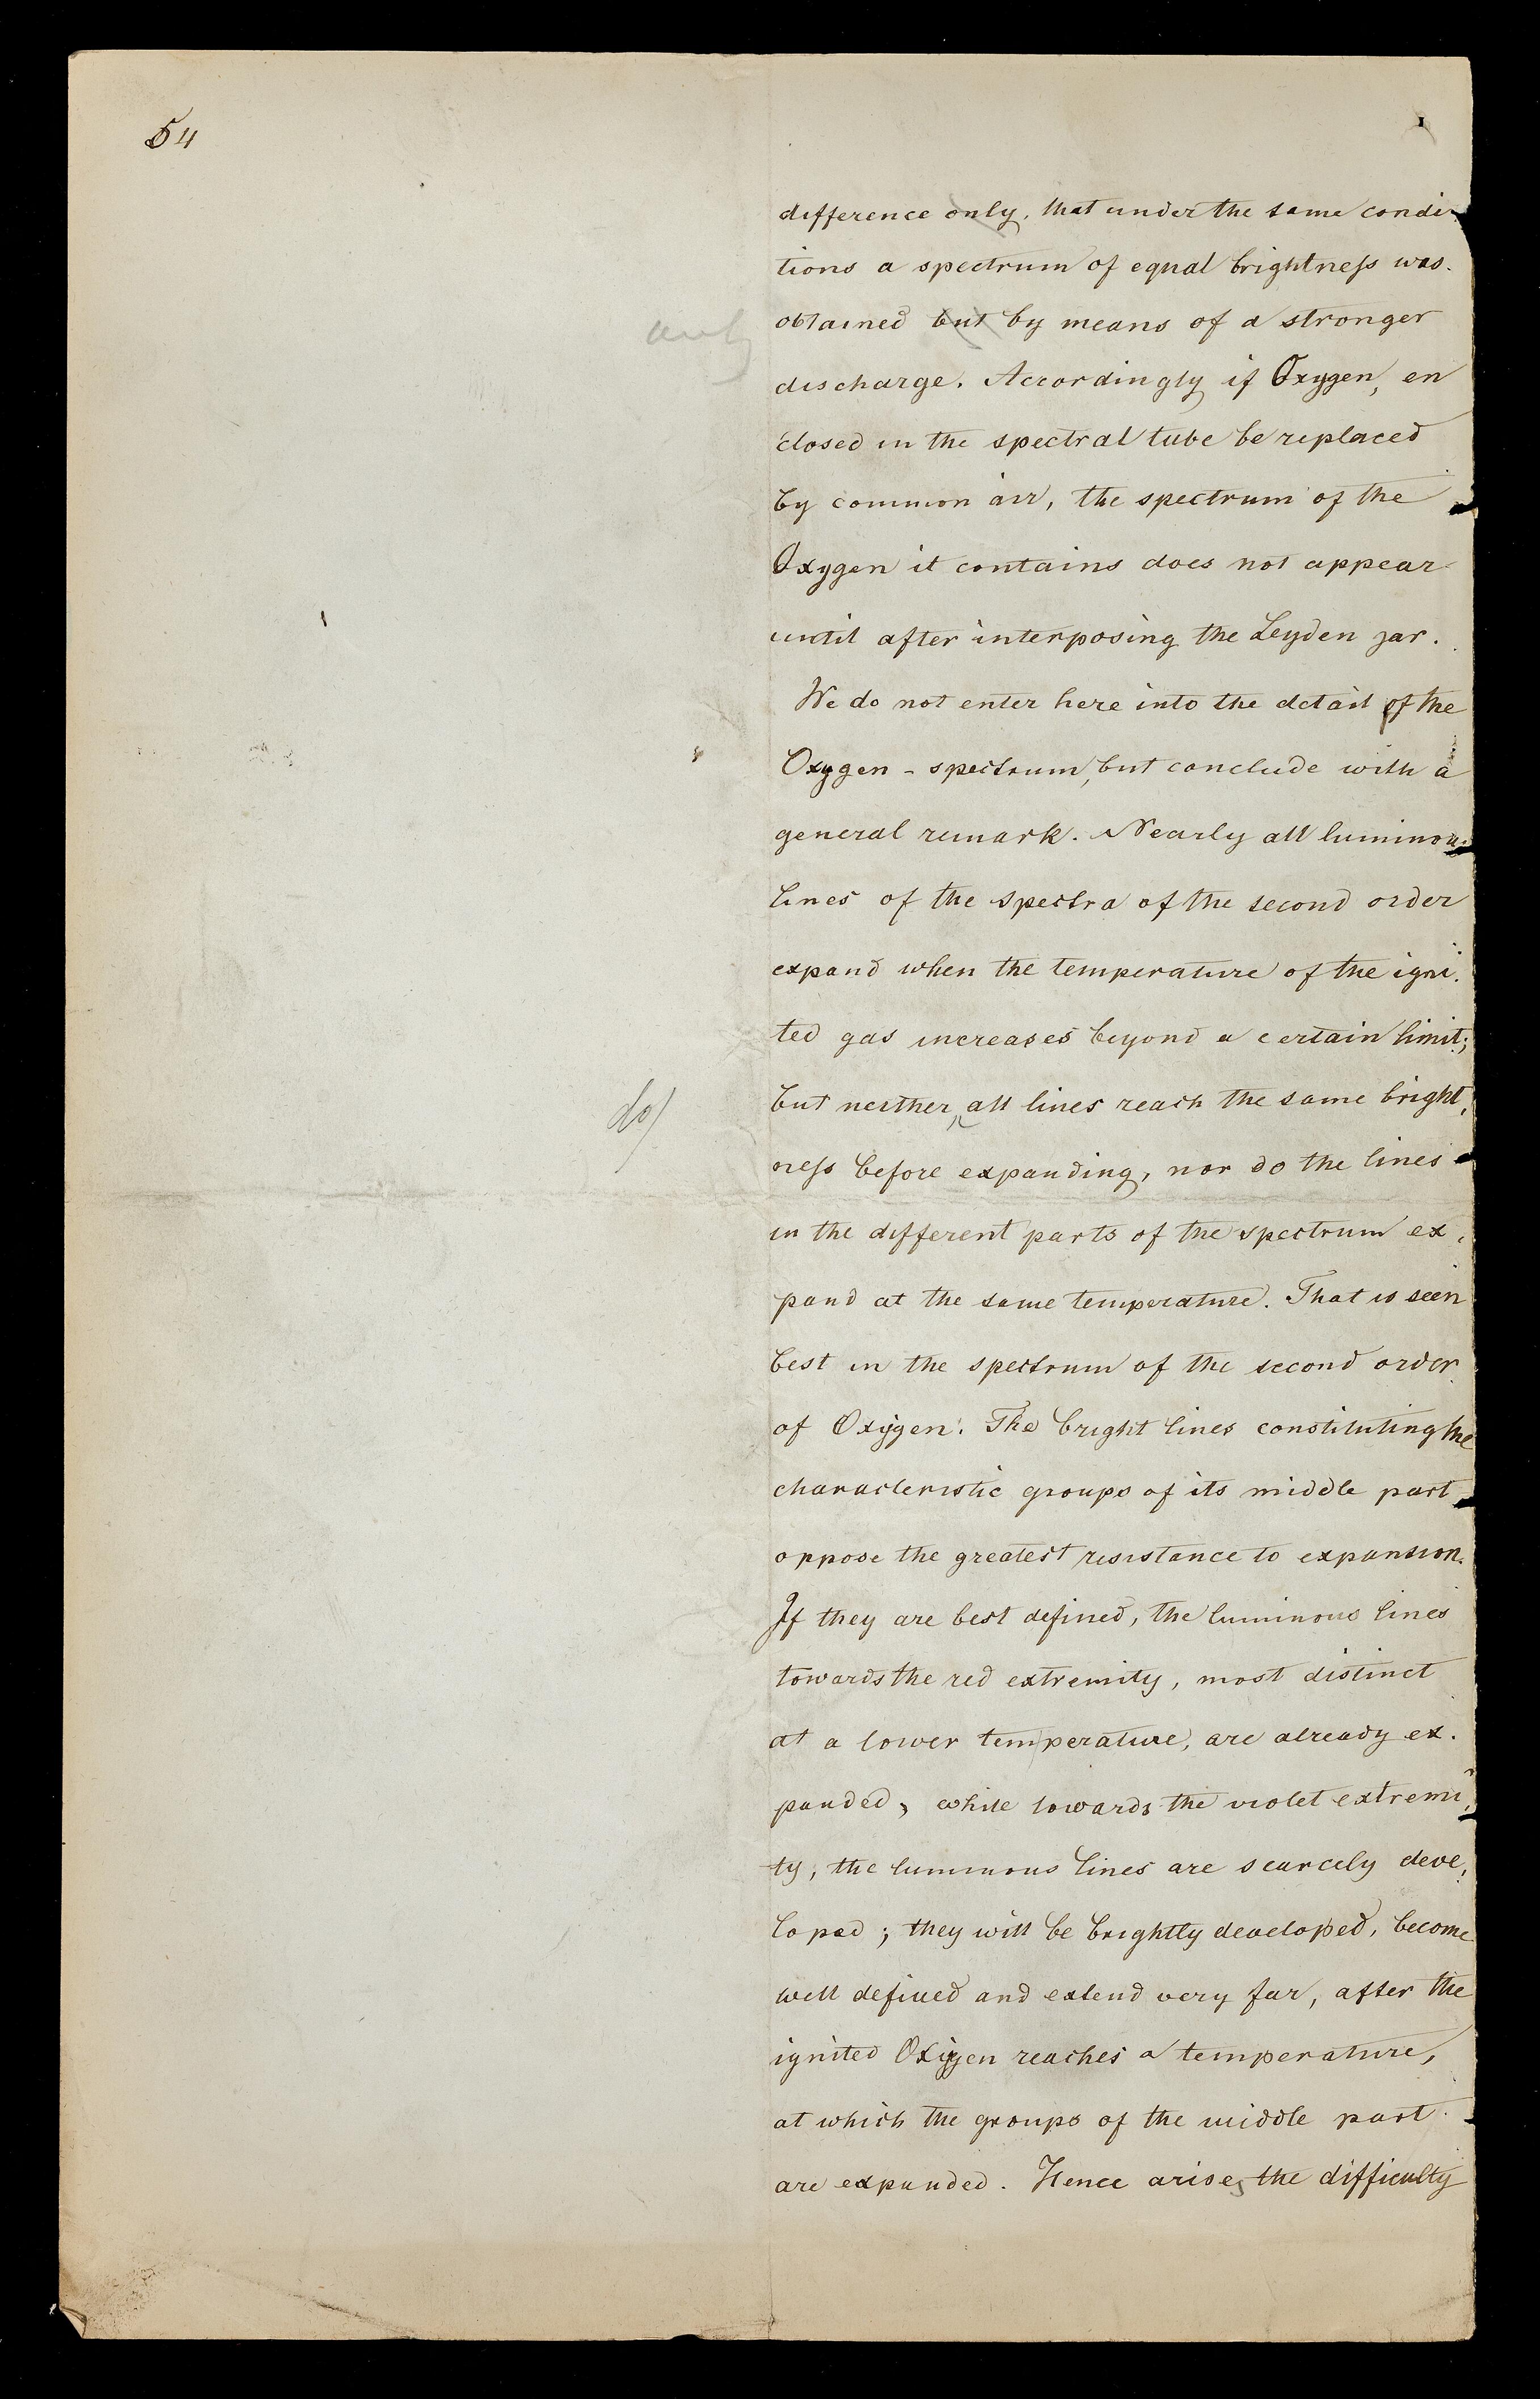 54
difference only, that under the same condi-
tions a spectrum of equal brightness was
only
obtained but by means of a stronger
discharge. Accordingly if Oxygen, en
closed in the spectral tube be replaced
by common air, the spectrum of the
Oxygen it contains does not appear
until after interposing the Leyden jar.
We do not enter here into the detail of the
Oxygen - spectrum, but conclude with a
general remark. Nearly all luminous
lines of the spectra of the second order
expand when the temperature of the igni-
ted gas increases beyond a certain limit;
do/
but neither all lines reach the same bright-
ness before expanding, nor do the lines
in the different parts of the spectrum ex-
pand at the same temperature. That is seen
best in the spectrum of the second order
of Oxygen. The bright lines constituting the
characteristic groups of its middle part
oppose the greatest resistance to expansion.
If they are best defined, the luminous lines
towards the red extremity, most distinct
at a lower temperature, are already ex-
panded, while towards the violet extremi-
ty, the luminous lines are scarcely deve-
loped; they will be brightly developed, become
well defined and extend very far, after the
ignited Oxygen reaches a temperature,
at which the groups of the middle part
are expanded. Hence arises the difficulty